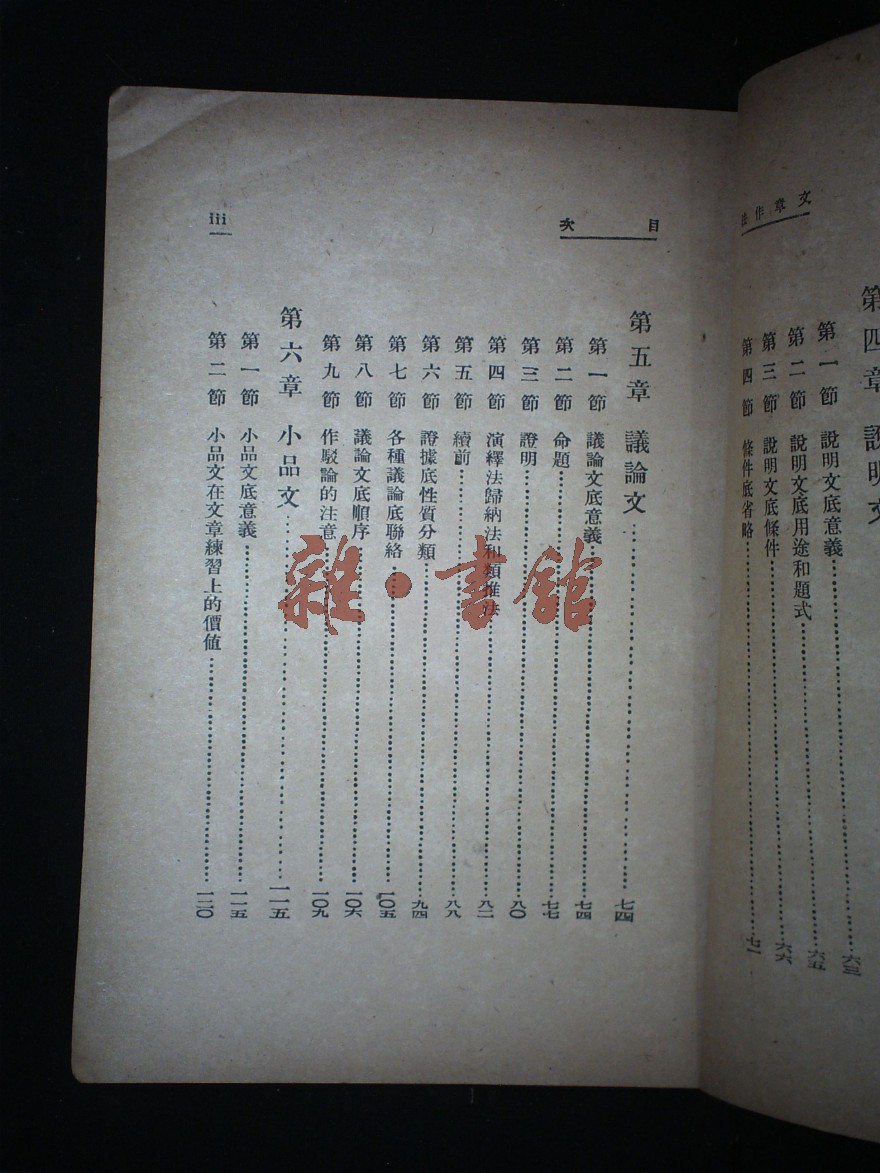 文章作法
第四章 說明文
第一節 說明文底意義……六三
第二節 說明文底用途和題式……六五
第三節 說明文底條件……六六
第四節 條件底省略……七一
目次
iii
第五章 議論文……七四
第一節 議論文底意義……七四
第二節 命題……七七
第三節 證明……八〇
第四節 演繹法歸納法和類推法……八二
第五節 續前……八八
第六節 證據底性質分類……九四
第七節 各種議論底聯絡……一〇五
第八節 議論文底順序……一〇六
第九節 作駁論的注意……一〇九
第六章 小品文……一一五
第一節 小品文底意義……一一五
第二節 小品文在文章練習上的價值……一二〇
雜·書館